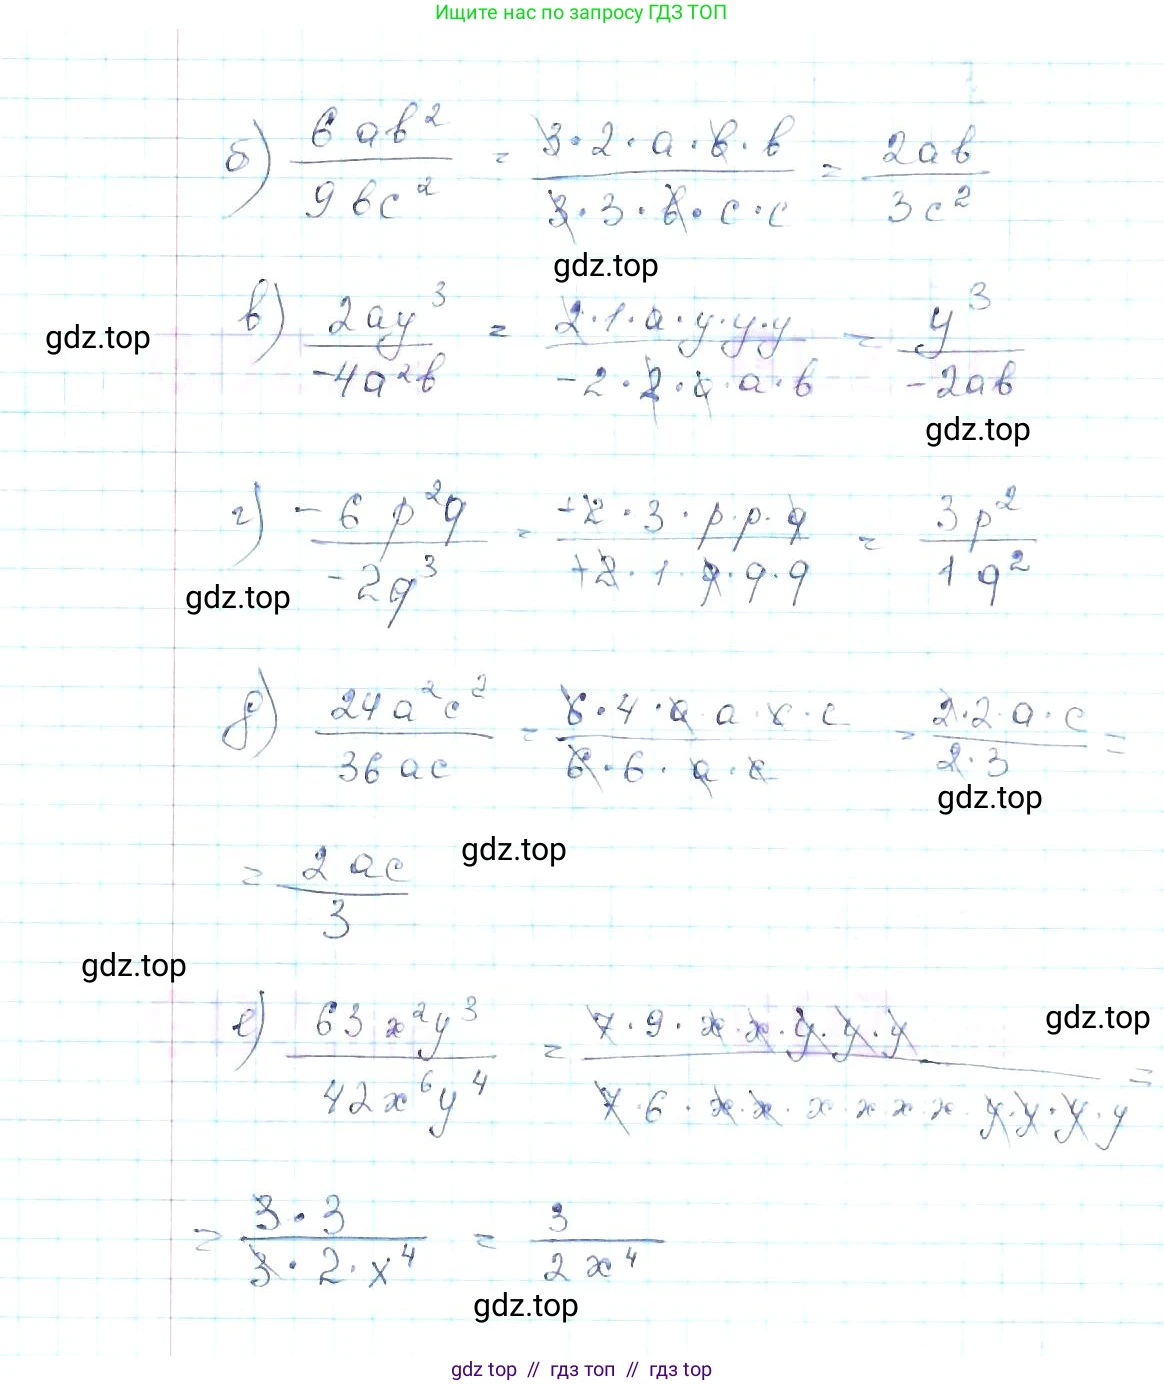 Ищите нас по запросу ГДЗ ТОП
б) 6ab²/9bc² = 3·2·a·b·b/3·3·b·c·c = 2ab/3c²
gdz.top
в) 2ay³/-4a²b = 2·1·a·y·y·y/-2·2·a·a·b = y³/-2ab
gdz.top
gdz.top
г) -6p²q/-2q³ = +2·3·p·p·q/+2·1·q·q·q = 3p²/1q²
gdz.top
д) 24a²c²/36ac = 6·4·a·a·c·c/6·6·a·c = 2·2·a·c/2·3 =
gdz.top
= 2ac/3
gdz.top
gdz.top
е) 63x²y³/42x⁶y⁴ = 7·9·x·x·y·y·y/7·6·x·x·x·x·x·x·y·y·y·y =
gdz.top
= 3·3/3·2·x⁴ = 3/2x⁴
gdz.top
gdz top // гдз топ // гдз top